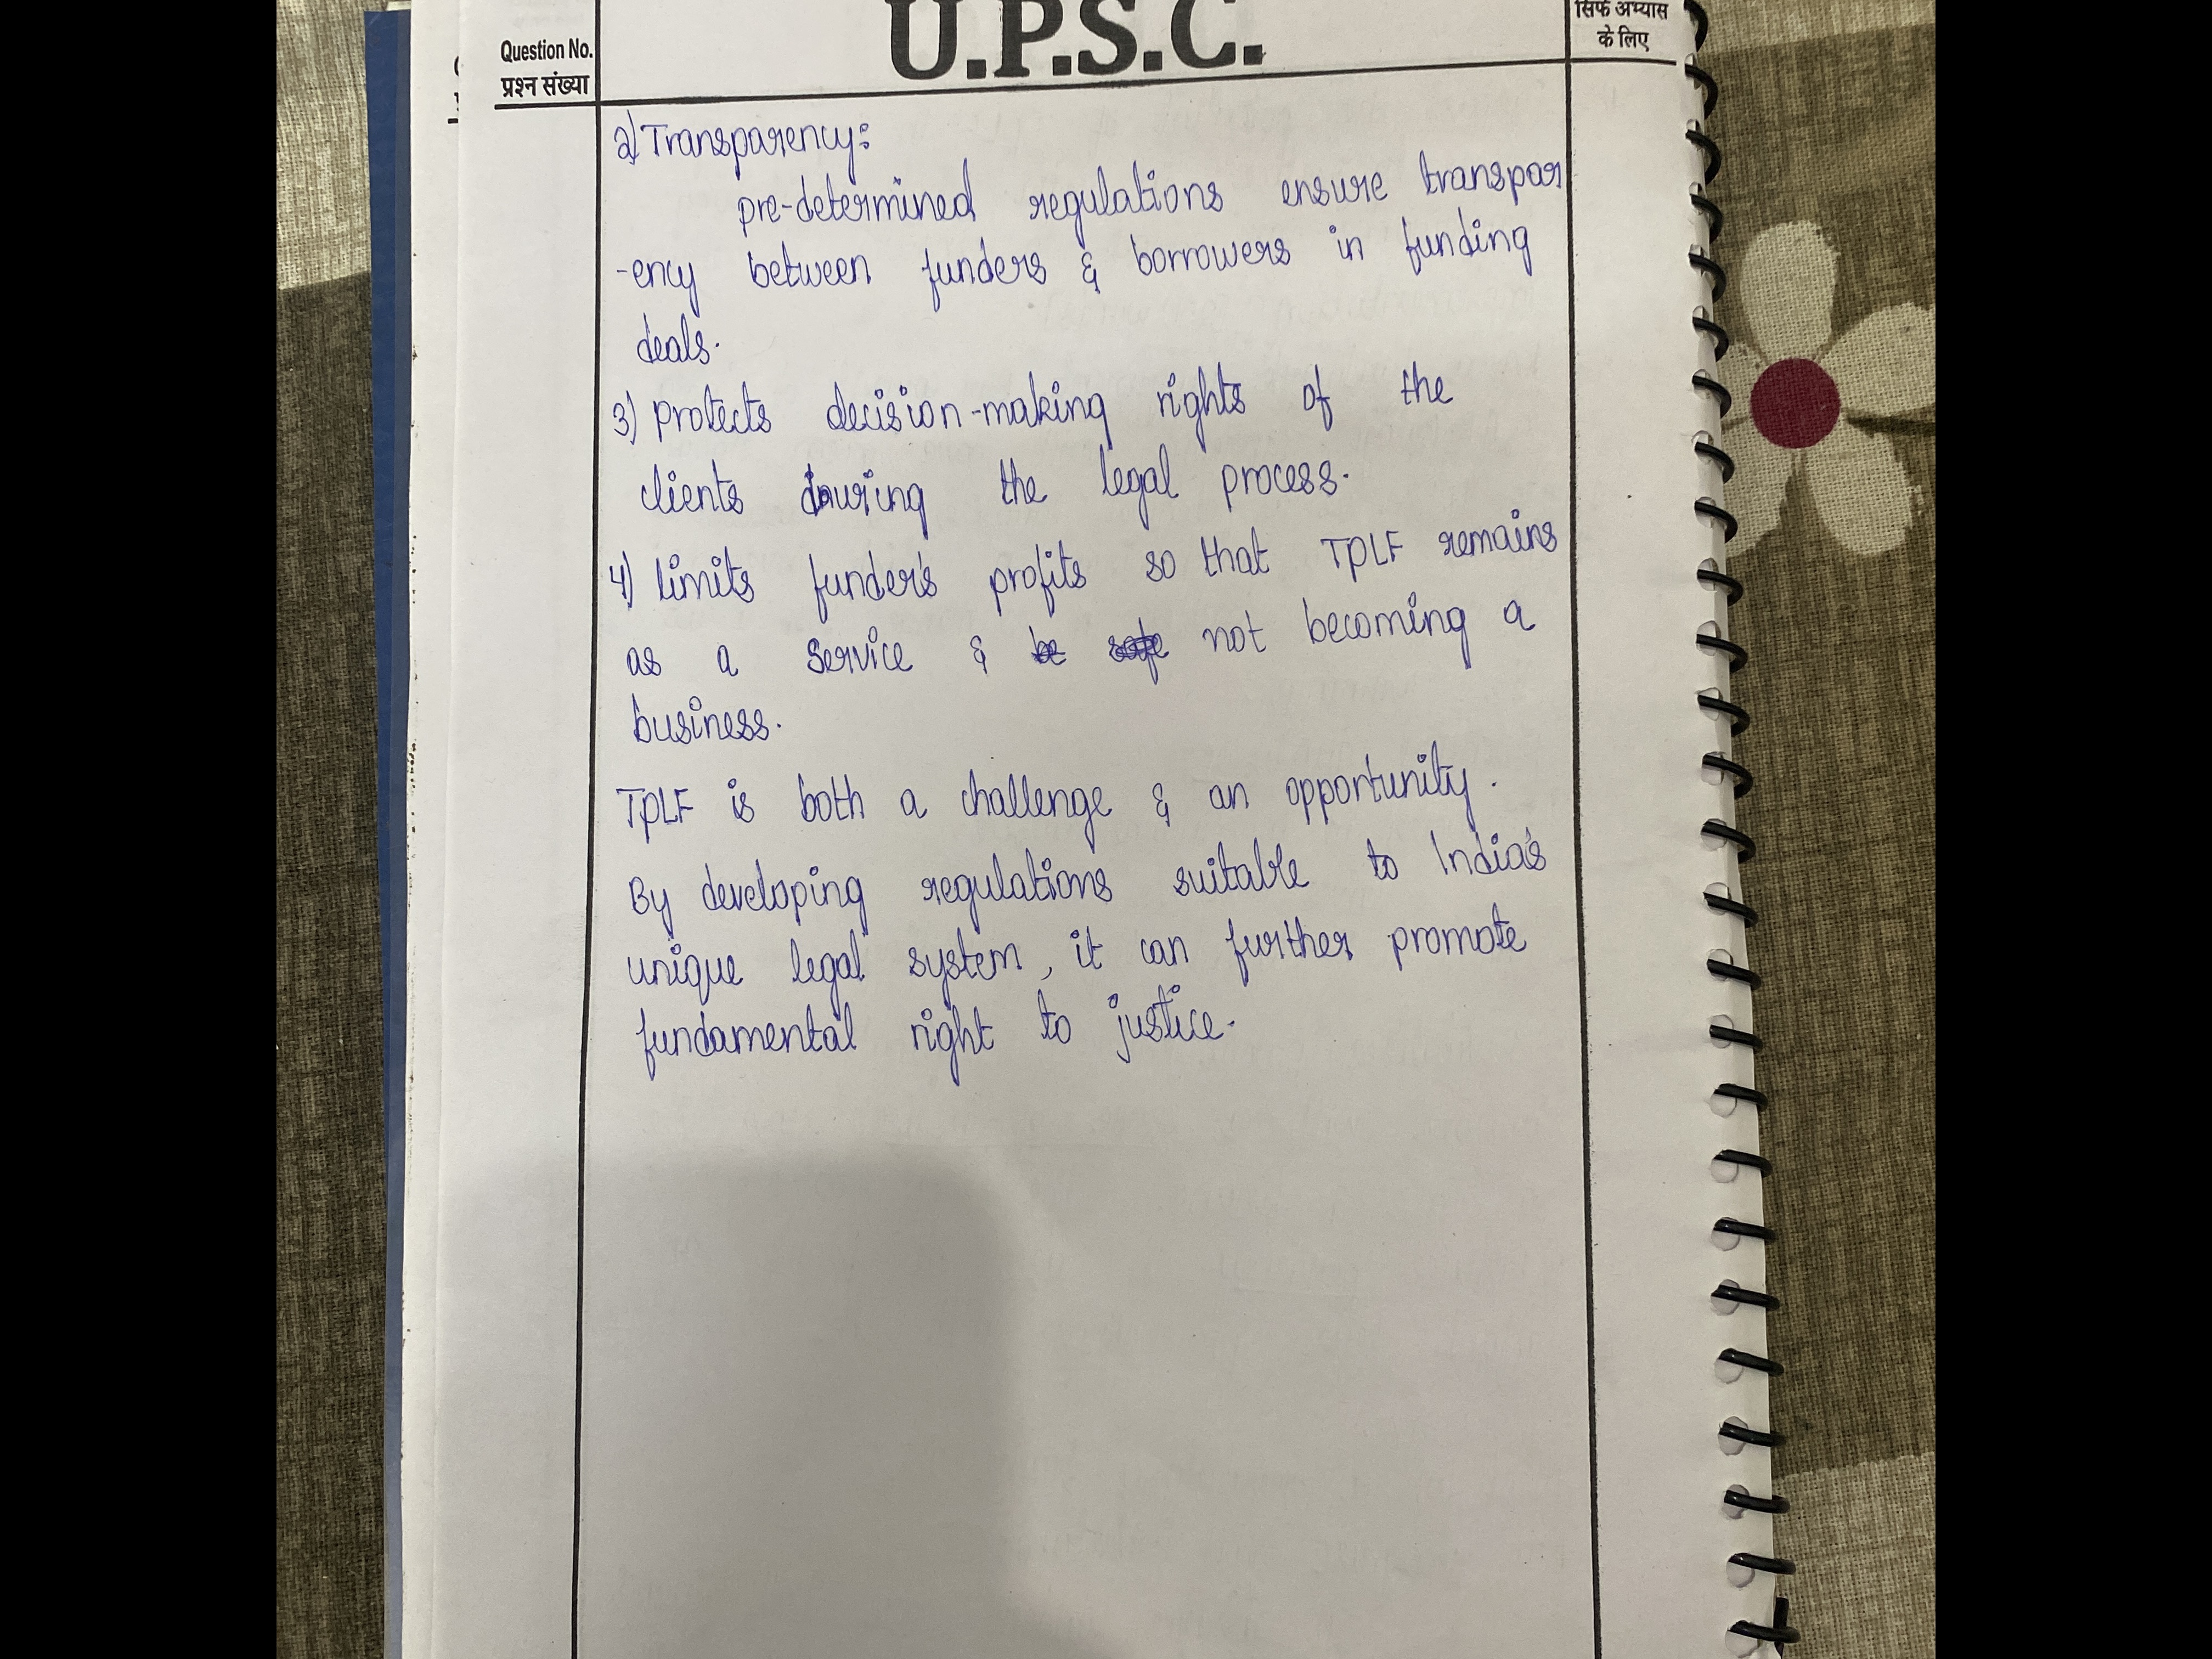 Question No.
प्रश्न संख्या
U.P.S.C.
सिर्फ अभ्यास
के लिए
2) Transparency:
pre-determined regulations ensure transpar
-ency between funders & borrowers in funding
deals.
3) protects decision-making rights of the
clients during the legal process.
4) limits funder's profits so that TPLF remains
as a service & not becoming a
business.
TPLF is both a challenge & an opportunity.
By developing regulations suitable to India's
unique legal system, it can further promote
fundamental right to justice.